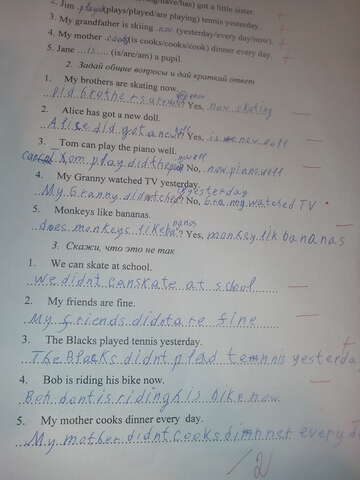 got a little sister.
2. Jim plays(plays/played/are playing) tennis yesterday.
3. My grandfather is skiing now (yesterday/every day/now).
4. My mother cooks(is cooks/cooks/cook) dinner every day.
5. Jane is (is/are/am) a pupil.
2. Задай общие вопросы и дай краткий ответ
1. My brothers are skating now.
Did brothers are ? Yes, now skating
2. Alice has got a new doll.
Alice did got anew doll ? Yes, is new doll
3. Tom can play the piano well.
Tom play did the ? No, now piano well
4. My Granny watched TV yesterday.
My Granny did yesterday ? No, Granny watched TV
5. Monkeys like bananas.
does monkeys like bananas ? Yes, monksy lik bananas
3. Скажи, что это не так
1. We can skate at school.
We didnt canskate at school
2. My friends are fine.
My friends didnt are fine
3. The Blacks played tennis yesterday.
The Blacks didnt plad tennis yesterday
4. Bob is riding his bike now.
Bob dont is riding his bike now
5. My mother cooks dinner every day.
My mother didnt cooks dinner every
/2/